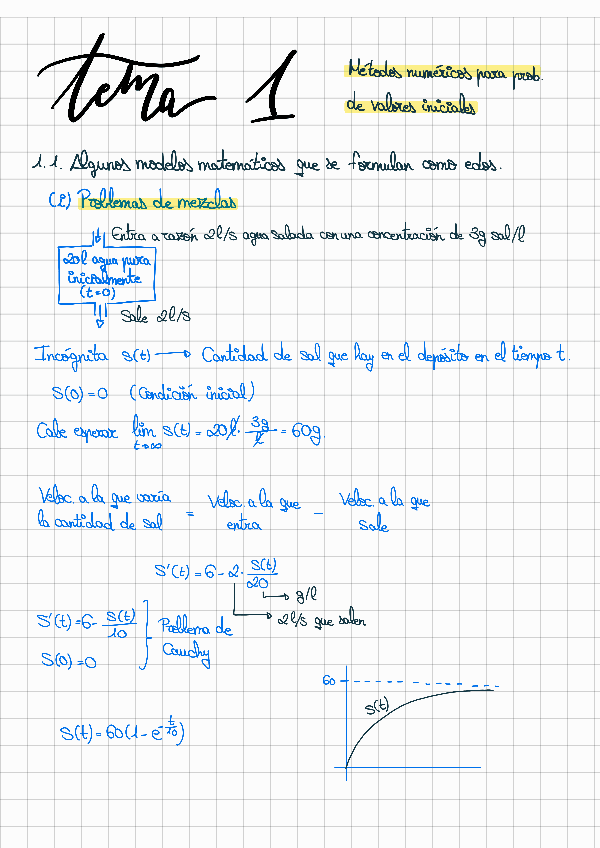 tema 1
Métodos numéricos para prob.
de valores iniciales
1.1. Algunos modelos matemáticos que se formulan como edos.
(1) Problemas de mezclas
Entra a razón 2l/s agua salada con una concentración de 3g sal/l
20l agua pura
inicialmente
(t=0)
Sale 2l/s
Incógnita s(t) → Cantidad de sal que hay en el depósito en el tiempo t.
S(0)=0 (Condición inicial)
Cabe esperar lim t→∞ s(t) = 20l · 3g/l = 60g.
Veloc. a la que varía la cantidad de sal = Veloc. a la que entra − Veloc. a la que sale
S'(t) = 6 - 2 · S(t)/20
→ g/l
→ 2l/s que salen
S'(t) = 6 - S(t)/10
S(0)=0
Problema de
Cauchy
60
s(t)
S(t) = 60(1 - e^(-t/10))